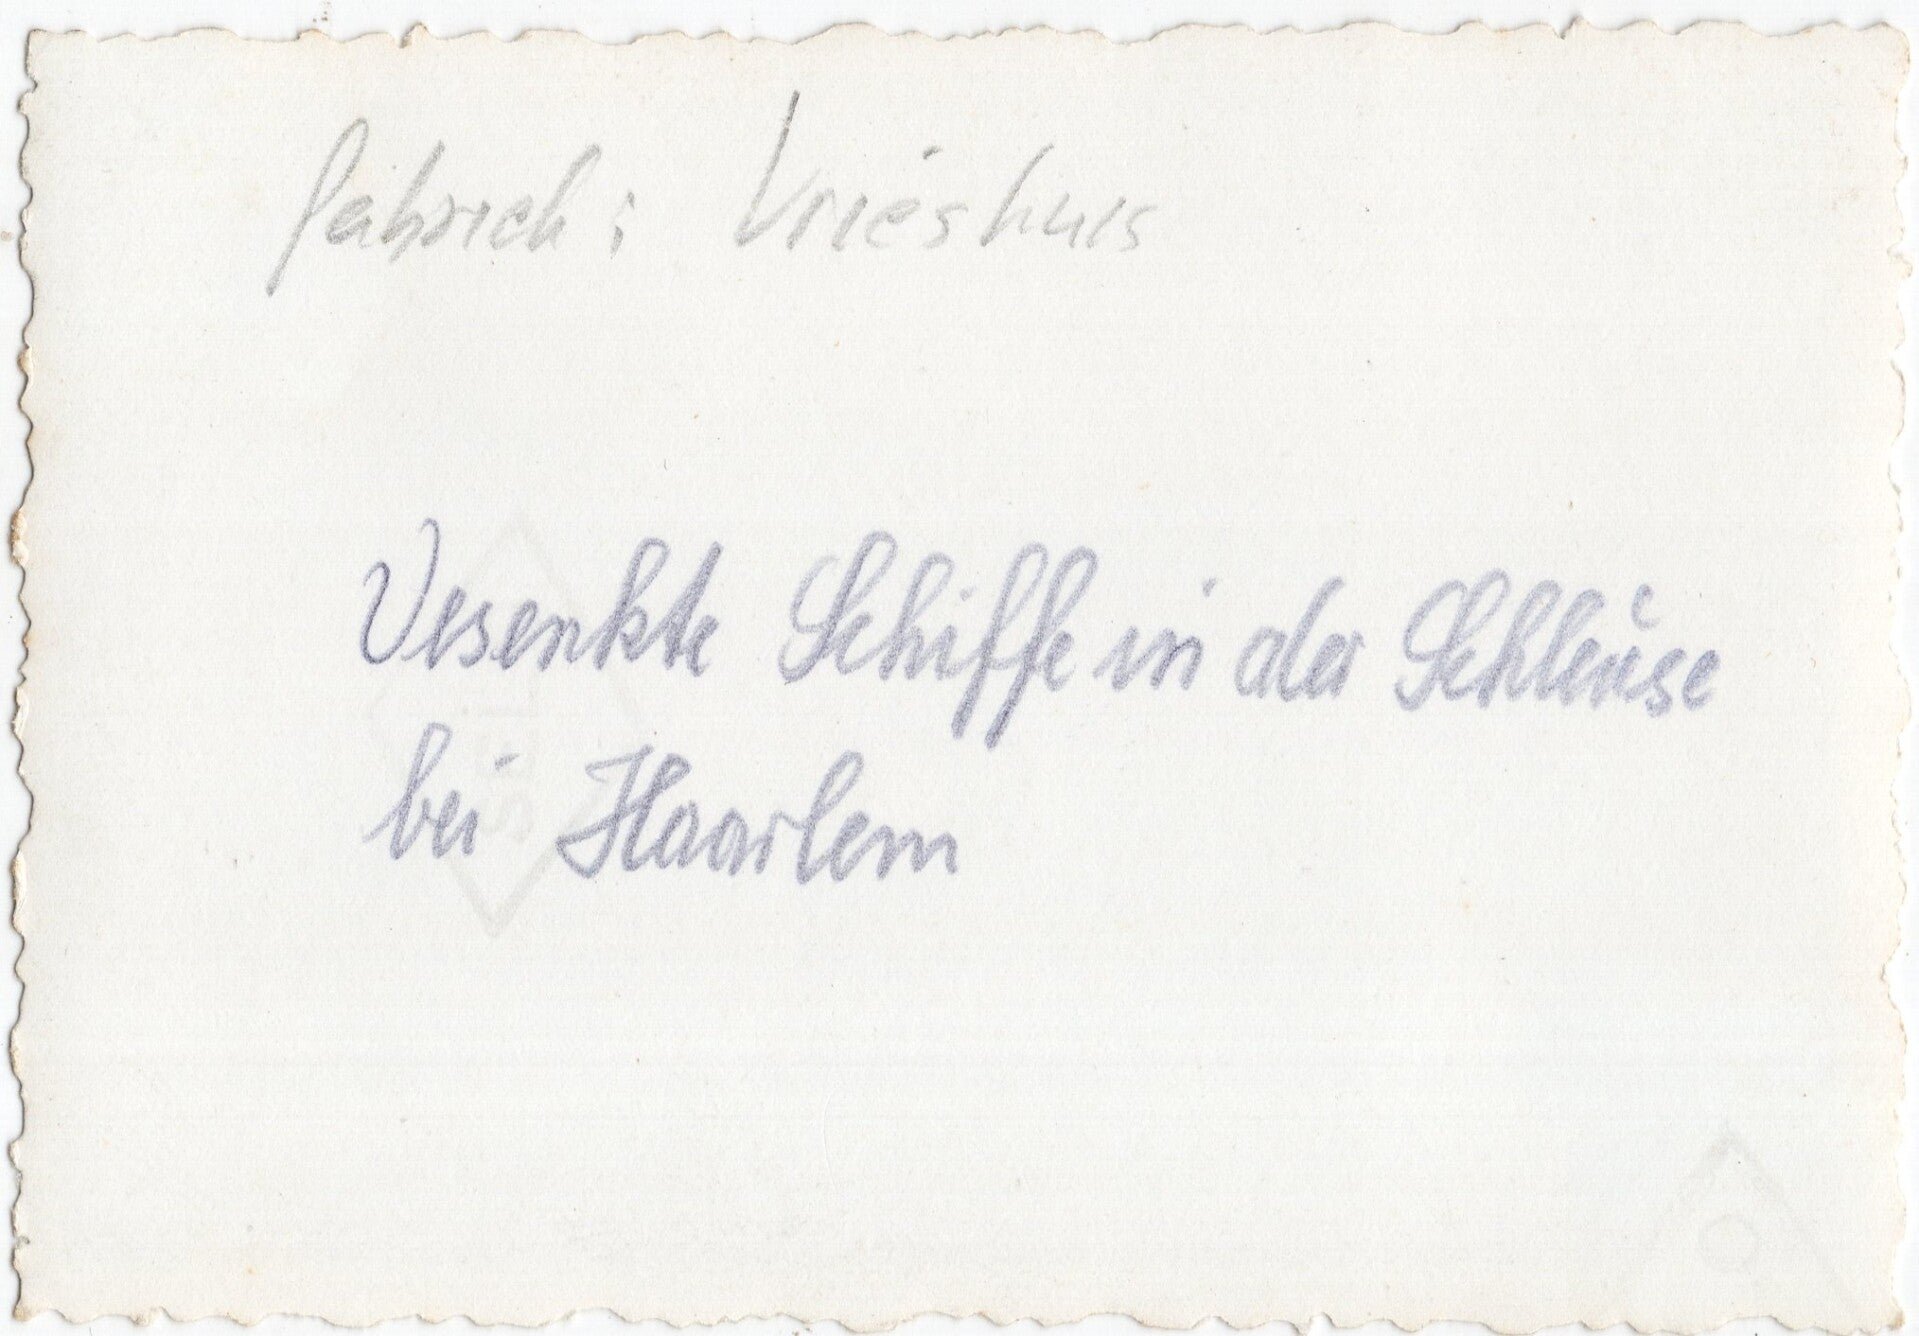 fabriek: Vrieshuis
Vesenkte Schiffe in der Schleuse
bei Haarlem